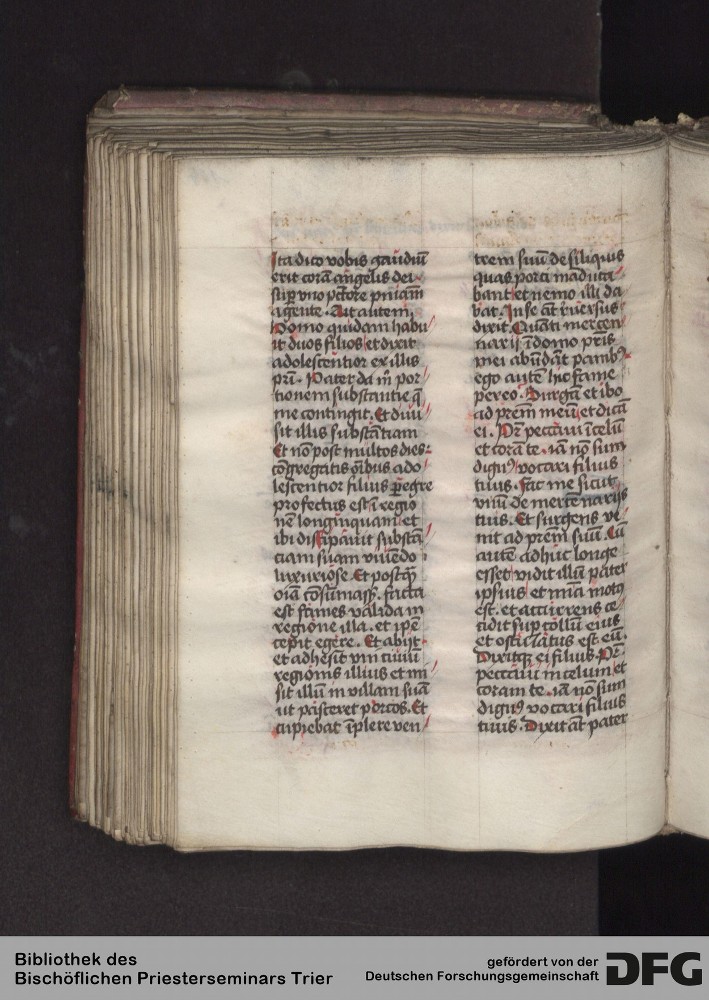 Ita dico vobis gaudiū
erit corā angelis dei
sup̄ vno pctōre pniam̄
agente. Ait autem
homo quidam habu
it duos filios et dixit
adolescentior ex illis
pr̄i. Pater da m̄ por
tionem substantie q̄
me contingit. Et diui
sit illis substātiam
Et nō post multos dies
cōgregatis oībus ado
lescentior filius ꝑegre
profectus est ī regio
nē longinquam et
ibi dissipauit substā
ciam suam viuēdo
luxuriose. Et postqꝫ̄
oīa cōsumasꝫ. facta
est fames valida in
regione illa. et ipē
cepit egere. Et abijt
et adhesit vni ciuiū
regionis illius et mi
sit illū in villam suā
ut pasteret porcos. Et
cupiebat īplere ven
trem suū de siliquis
quas porci māduca
bant et nemo illi da
bat. In se aūt reuersus
dixit. Quāti mercen
narij ī domo pr̄is
mei abūdāt panibꝰ
ego autē hic fame
pereo. Surgā et ibo
ad prēm meū et dicā
ei. Pr̄ peccaui ī celū
et corā te. iā nō sum
dignꝰ vocari filius
tuus. fac me sicut
vnū de mercēnarijs
tuis. Et surgens ve
nit ad prēm suū. Cū
autē adhuc longe
esset vidit illū pater
ipsius et mīa motꝰ
est. et accurrens ce
cidit sup̄ collū eius
et osculatus est eū.
Dixitqꝫ ei filius. Pr̄
peccaui in celum et
coram te. iā nō sum
dignꝰ vocari filius
tuus. Dixit āt pater
Bibliothek des
Bischöflichen Priesterseminars Trier
gefördert von der
Deutschen Forschungsgemeinschaft
DFG